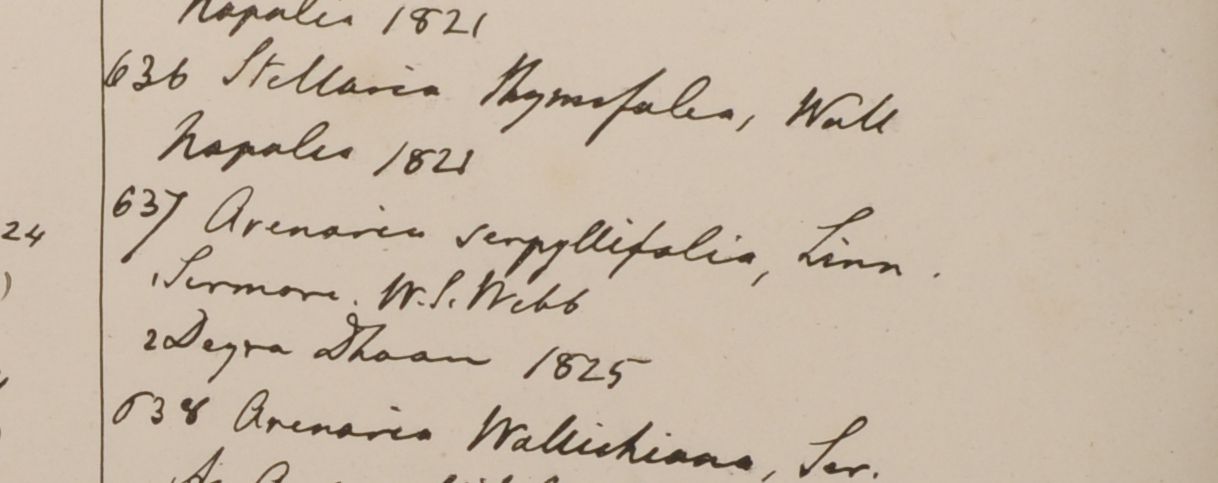 Napalia 1821
636 Stellaria thymifolia, Wall
Napalia 1821
637 Arenaria serpyllifolia, Linn.
24
1 Sirmore. W.S. Webb
)
2 Deyra Dhoon 1825
638 Arenaria Wallichiana, Ser.